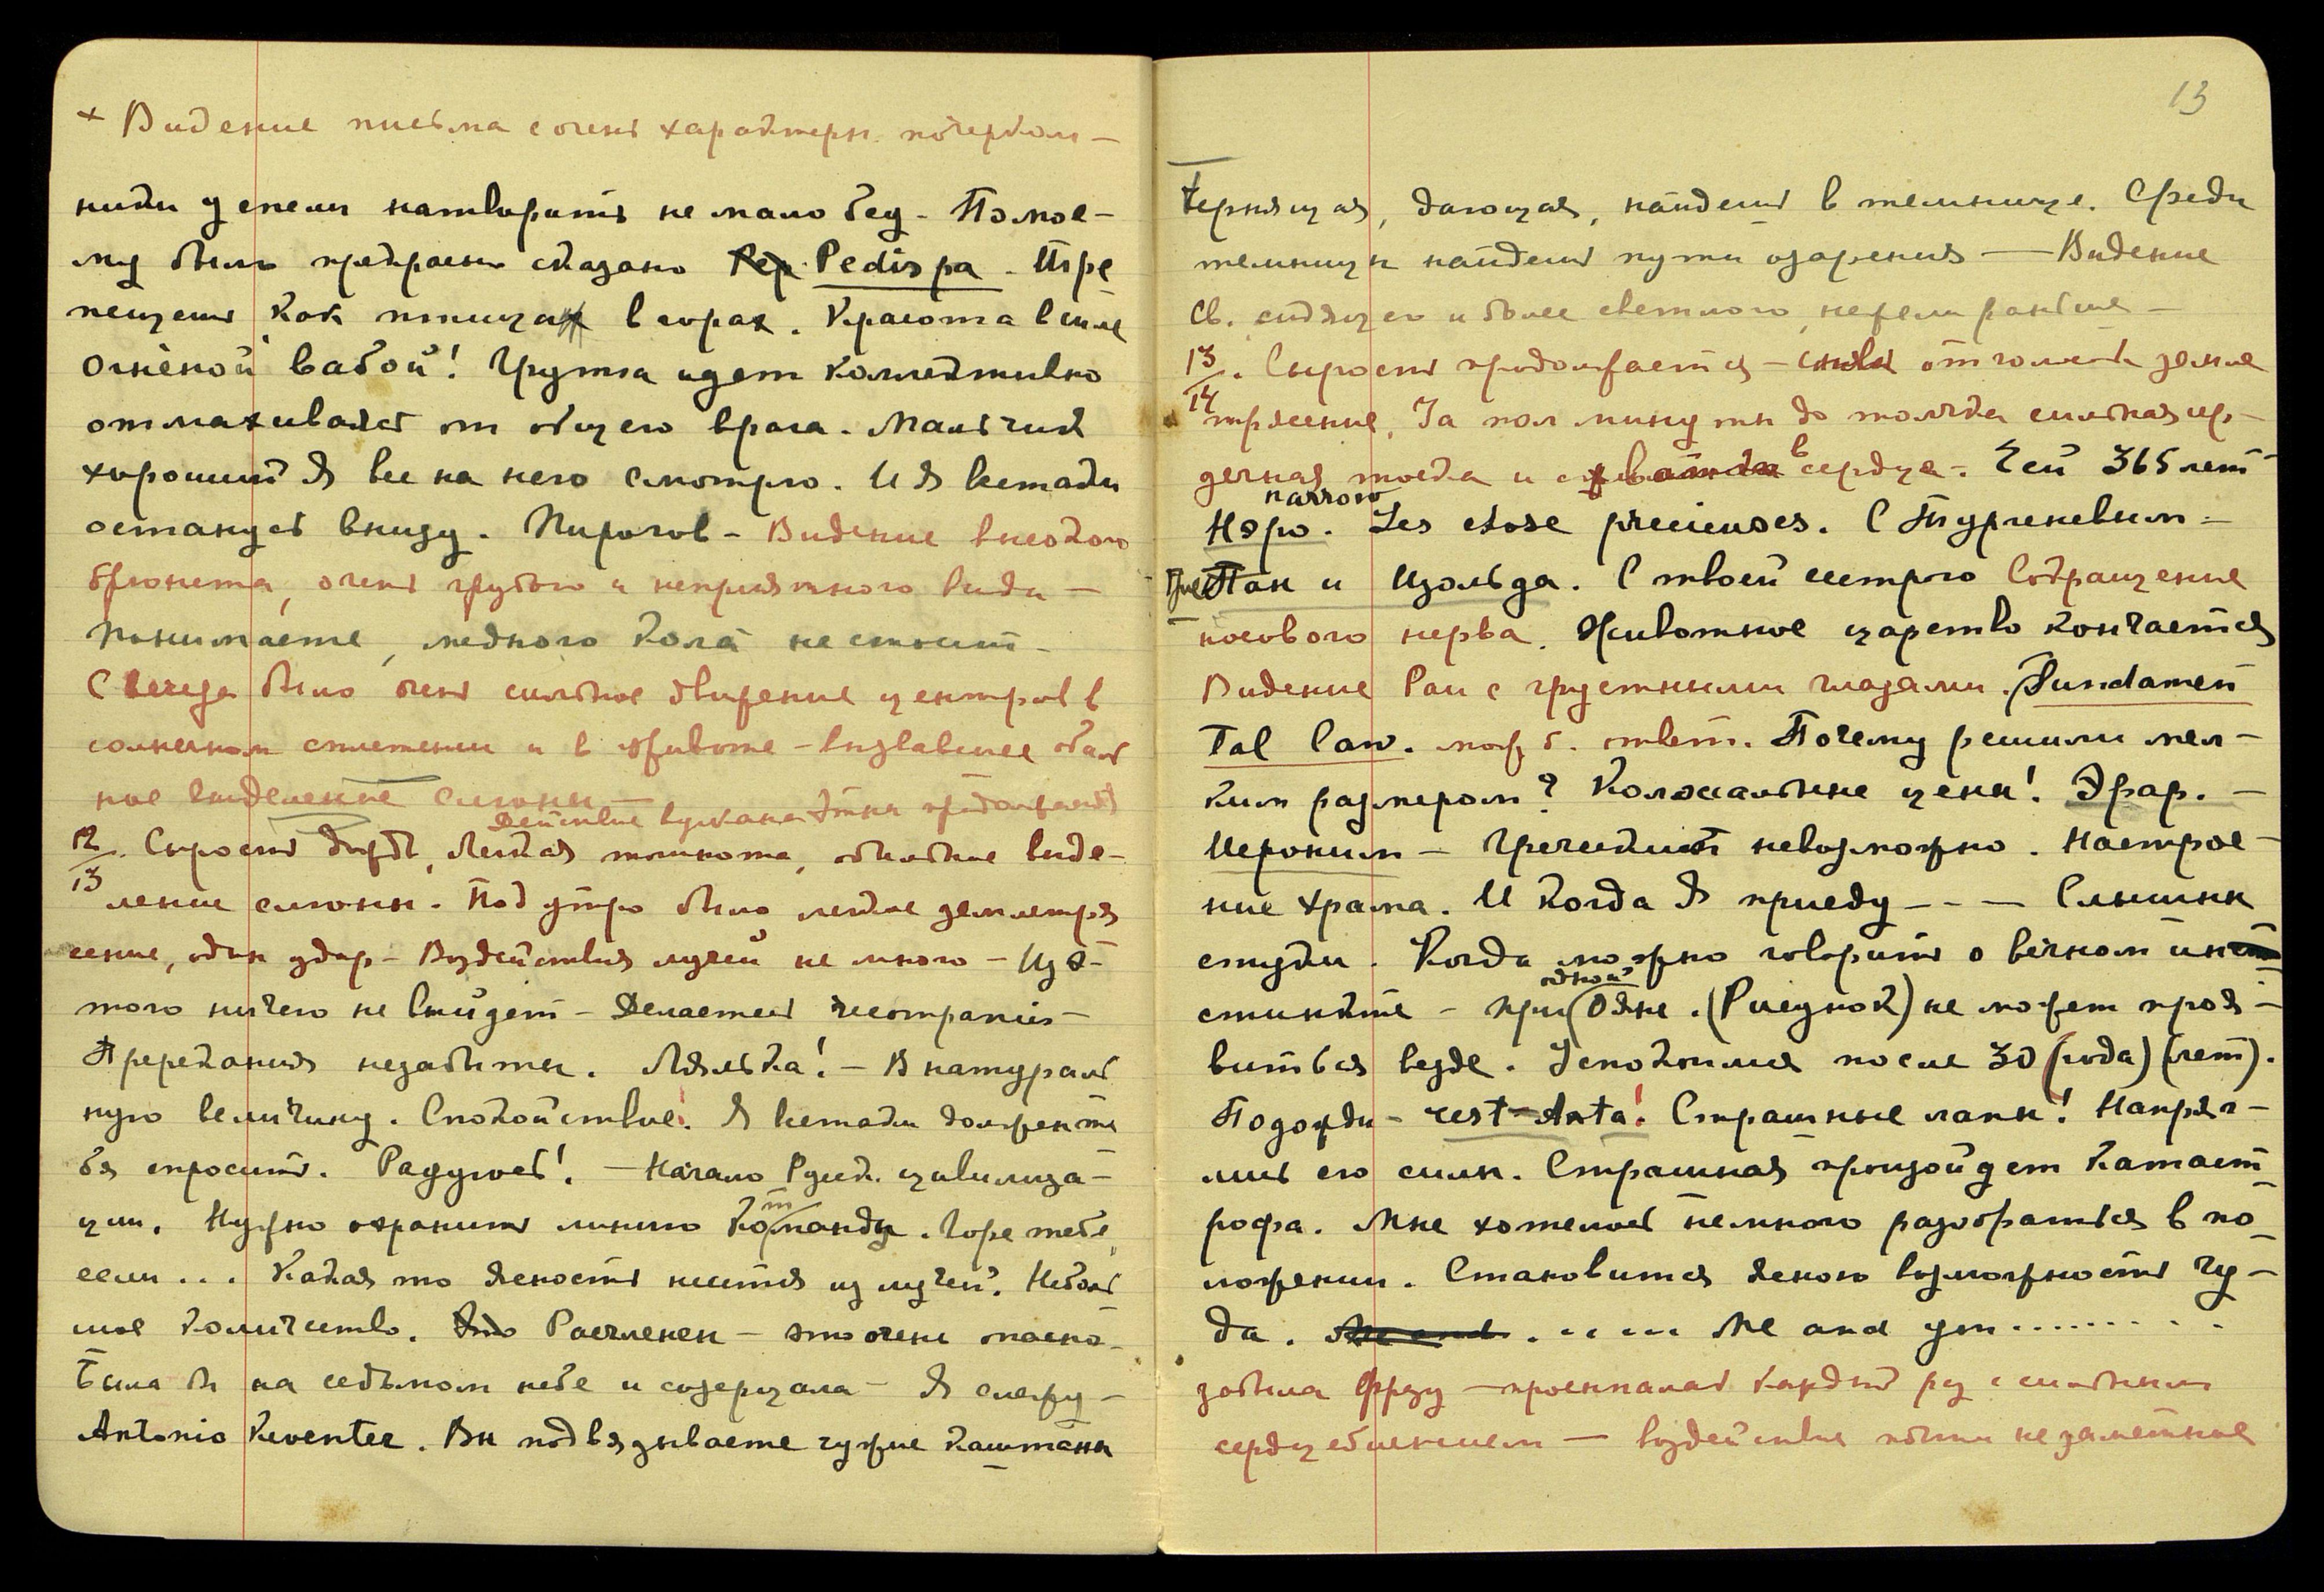 + Видение письма с очень характерн. почерком —
ники успели натворить не мало бед - По мое-
му было прекрасно сказано Pedispa - Тре
пещет как птица в горах. Красота в силе
огненой вабой! Группа идет коллективно
отмахиваясь от общего врага. Мальчик
хороший Я все на него смотрю. И я всетаки
останусь внизу. Пирогов - Видение высокого
брюнета, очень грубого и неприятного вида —
Понимаете, медного кола не стоит -
С вечера было очень сильное движение центров в
солнечном сплетении и в животе - вызвавшее обиль
ное выделение слюны —
Действие вулкана Этна продолжается
12/13. Сырость, дождь, Легкая тошнота, обильное виде-
ление слюны. Под утро было легкое землетря
сение, один удар - Воздействия лучей не много - Из э-
того ничего не выйдет - Делается
Пререкания незабыты. Лялька! - В натураль
ную величину. Спокойствие! Я всетаки должен те
бя спросить. Радуюсь! - Начало Русск. цивилиза-
ции. Нужно охранить линию Команды. Горе тебе,
если ... Какая то ясность нитья из лучей? Неболь
шое количество. Расчленен - это очень опасно -
Была бы на седьмом небе и созерцала - Я слежу -
Antonio Keventer. Вы подвязываете чужие каштаны
13
Черпящая, дающая, найдешь в темнице. Среди
темницы найдешь пути озарения — Видение
Св. сидящего и более светлого, нежели раньше -
13/14. Сырость продолжается - отголоски земле
трясение, За пол минуты до толчка сильная сер-
дечная тоска и в сердце - Чей 365 лет
narrow
Нэро. Les chose precieuses. С Тургеневым -
Пан и Изольда. С твоей сестрою Сокращение
носового нерва. Животное царство кончается
Видение Раи с грустными глазами. Fundamen
Tal law. мож б. ответ. Почему решили мел-
ким размером? Колоссальные цены! Эрар. -
Иероним - Греческий невозможно. Настрое-
ние храма. И когда я приеду - - — Слышны
стуки. Когда можно говорить о вечном ин
стинкте - при (одной?) Одне. (Рисунок) не может проя-
виться везде. Успокоимся после 30 (года) (лет).
Подожди - rest-Anta! Страшные лапы! Напряг-
лись его силы. Страшная произойдет катаст
рофа. Мне хотелось немного разобраться в по
ложении. Становится ясною возможность чу-
да. ........ Me and you .........
забыла фразу - просыпалась каждый раз с сильным
сердцебиением — воздействия почти незаметные